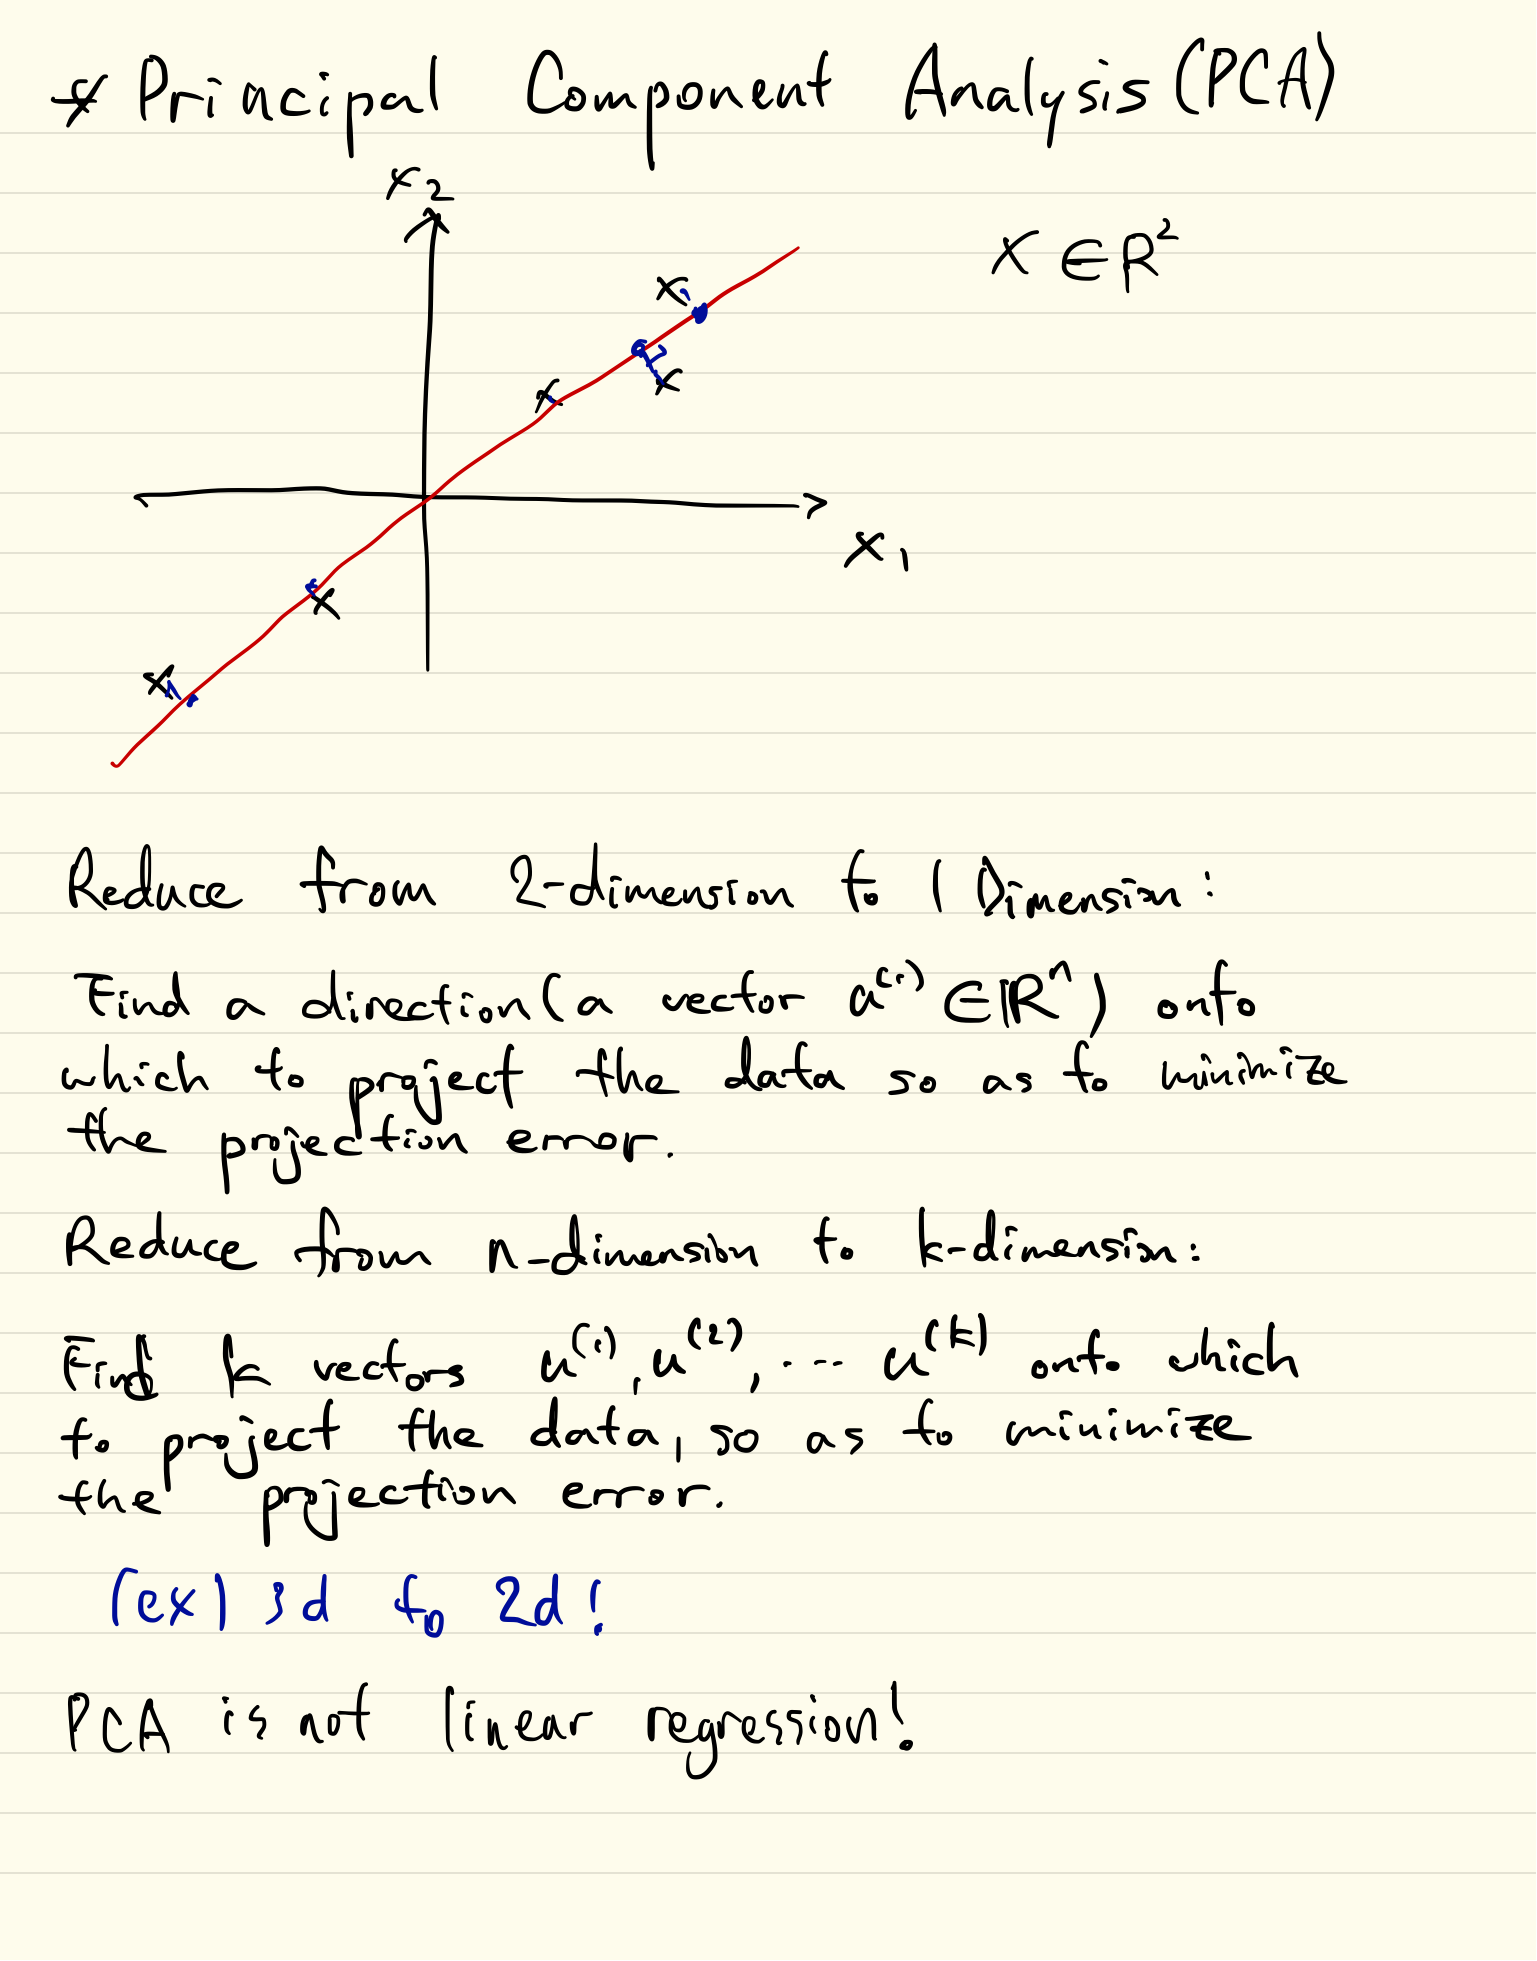 * Principal Component Analysis (PCA)
x2
X ∈ R²
x1
Reduce from 2-dimension to 1 Dimension:
Find a direction (a vector u⁽¹⁾ ∈ ℝⁿ) onto
which to project the data so as to minimize
the projection error.
Reduce from n-dimension to k-dimension:
Find k vectors u⁽¹⁾, u⁽²⁾, ... u⁽ᵏ⁾ onto which
to project the data, so as to minimize
the projection error.
(ex) 3d to 2d!
PCA is not linear regression!